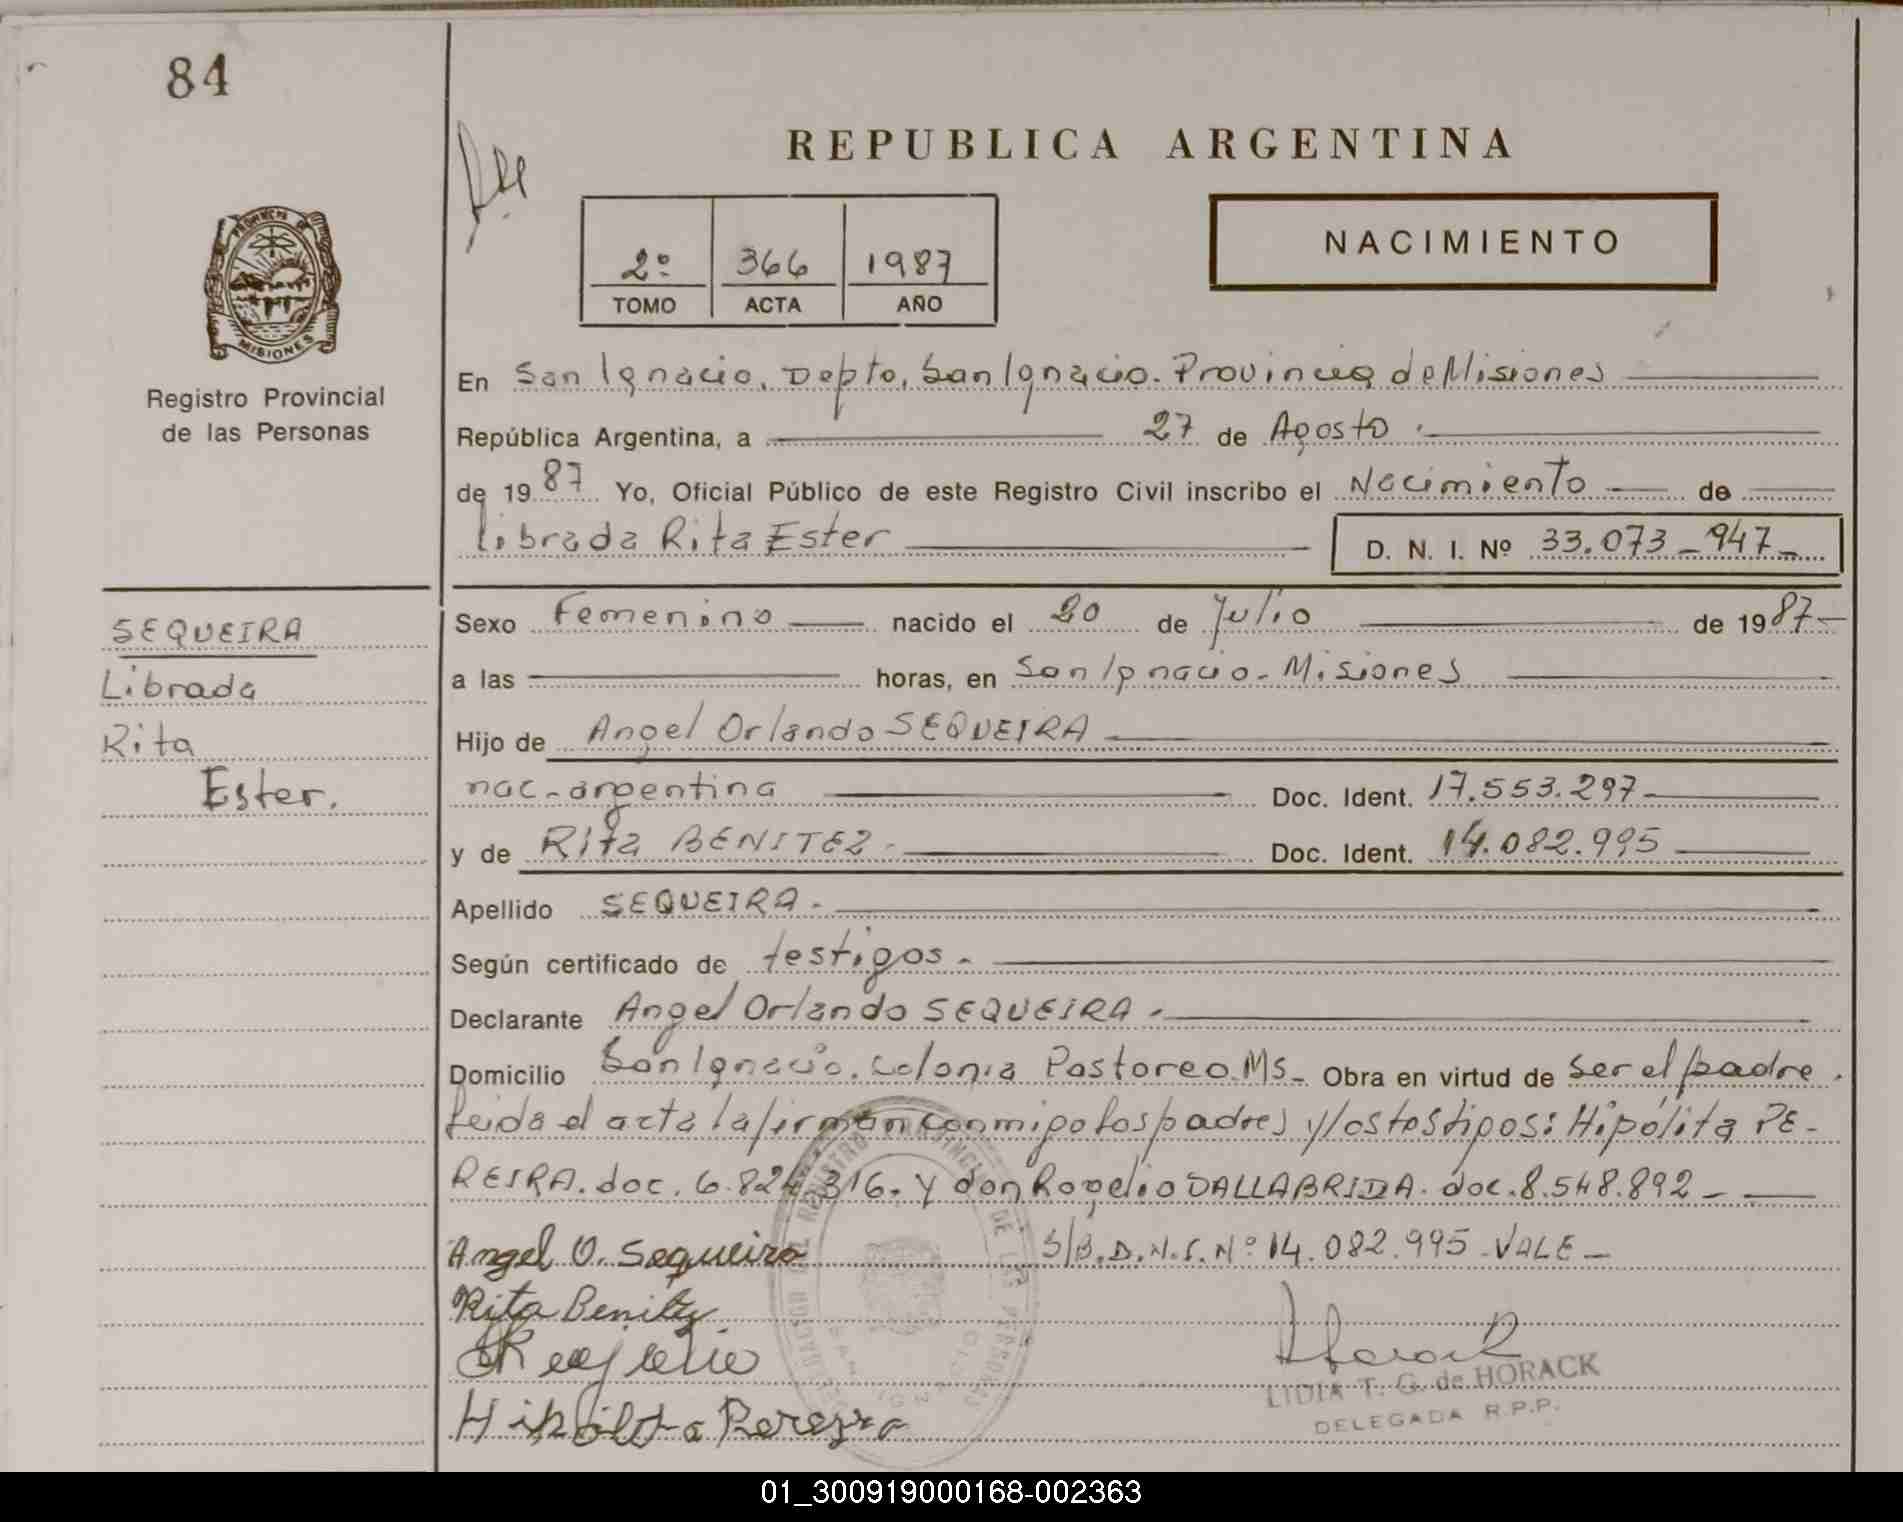 84
REPUBLICA ARGENTINA
2º 366 1987
TOMO ACTA AÑO
NACIMIENTO
PROVINCIA DE
MISIONES
Registro Provincial
de las Personas
En San Ignacio, Depto, San Ignacio. Provincia de Misiones
República Argentina, a 27 de Agosto.
de 1987 Yo, Oficial Público de este Registro Civil inscribo el Nacimiento de
Librada Rita Ester D. N. I. Nº 33.073-947-
SEQUEIRA
Librada
Rita
Ester.
Sexo Femenino nacido el 20 de Julio de 1987-
a las horas, en San Ignacio - Misiones
Hijo de Angel Orlando SEQUEIRA
nac-argentina Doc. Ident. 17.553.297
y de Rita BENITEZ. Doc. Ident. 14.082.995
Apellido SEQUEIRA.
Según certificado de testigos.
Declarante Angel Orlando SEQUEIRA.
Domicilio San Ignacio. Colonia Pastoreo. Ms- Obra en virtud de ser el padre.
Leida el acta la firman conmigo los padres y los testigos: Hipólita PE-
REIRA. doc. 6.824.316. y don Rogelio DALLABRIDA. doc. 8.548.892-
Angel O. Sequeira S/B. D.N.I. Nº 14.082.995 - VALE -
Rita Benitez
Horack
LIDIA T. G. de HORACK
DELEGADA R.P.P.
Hipólita Pereyra
01_300919000168-002363